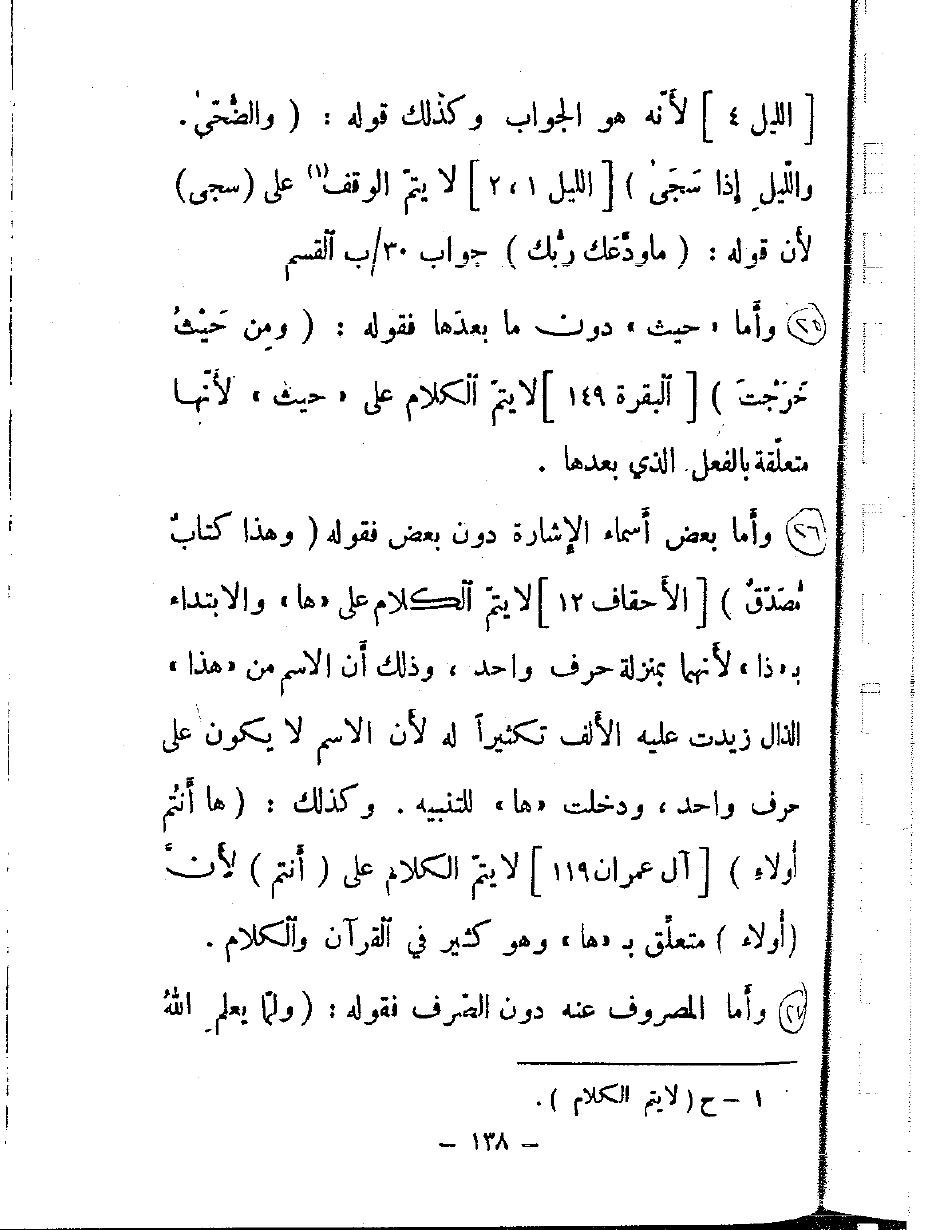 [ الليل ٤ ] لأنّه هو الجواب وكذلك قوله : ( والضُّحَىٰ .
والّليلِ إذا سَجَىٰ ) [ الليل ١ ، ٢ ] لا يتمّ الوقف(١) على (سجى)
لأن قوله : ( ماودَّعَك ربُّك ) جواب ٣٠/ب ٱلقسم
(٢٥) وأَما « حيث » دون ما بعدَها فقوله : ( ومِن حَيْثُ
خَرَجْتَ ) [ ٱلبقرة ١٤٩ ] لا يتمّ ٱلكلام على « حيث » لأَنّها
متعلّقة بالفعل الذي بعدها .
(٢٦) وأَما بعض أسماء الإشارة دون بعض فقوله ( وهذا كتابٌ
مُصَدّقٌ ) [ الأَحقاف ١٢ ] لا يتمّ ٱلكلام على «ها» والابتداء
بـ «ذا» لأَنهما بمنزلة حرف واحد ، وذلك أَن الاسم من «هذا»
الذال زيدت عليه الأَلف تكثيراً له لأَن الاسم لا يكون على
حرف واحد ، ودخلت «ها» للتنبيه . وكذلك : ( ها أَنتُم
أُولاءِ ) [ آل عمران ١١٩ ] لا يتمّ الكلام على ( أَنتم ) لأَنَّ
(أُولاء ) متعلّق بـ «ها» وهو كثير في ٱلقرآن وٱلكلام .
(٢٧) وأَما المصروف عنه دون الصّرف فقوله : ( ولمّا يعلمِ اللهُ
١ – ح ( لا يتم الكلام ) .
– ١٣٨ –